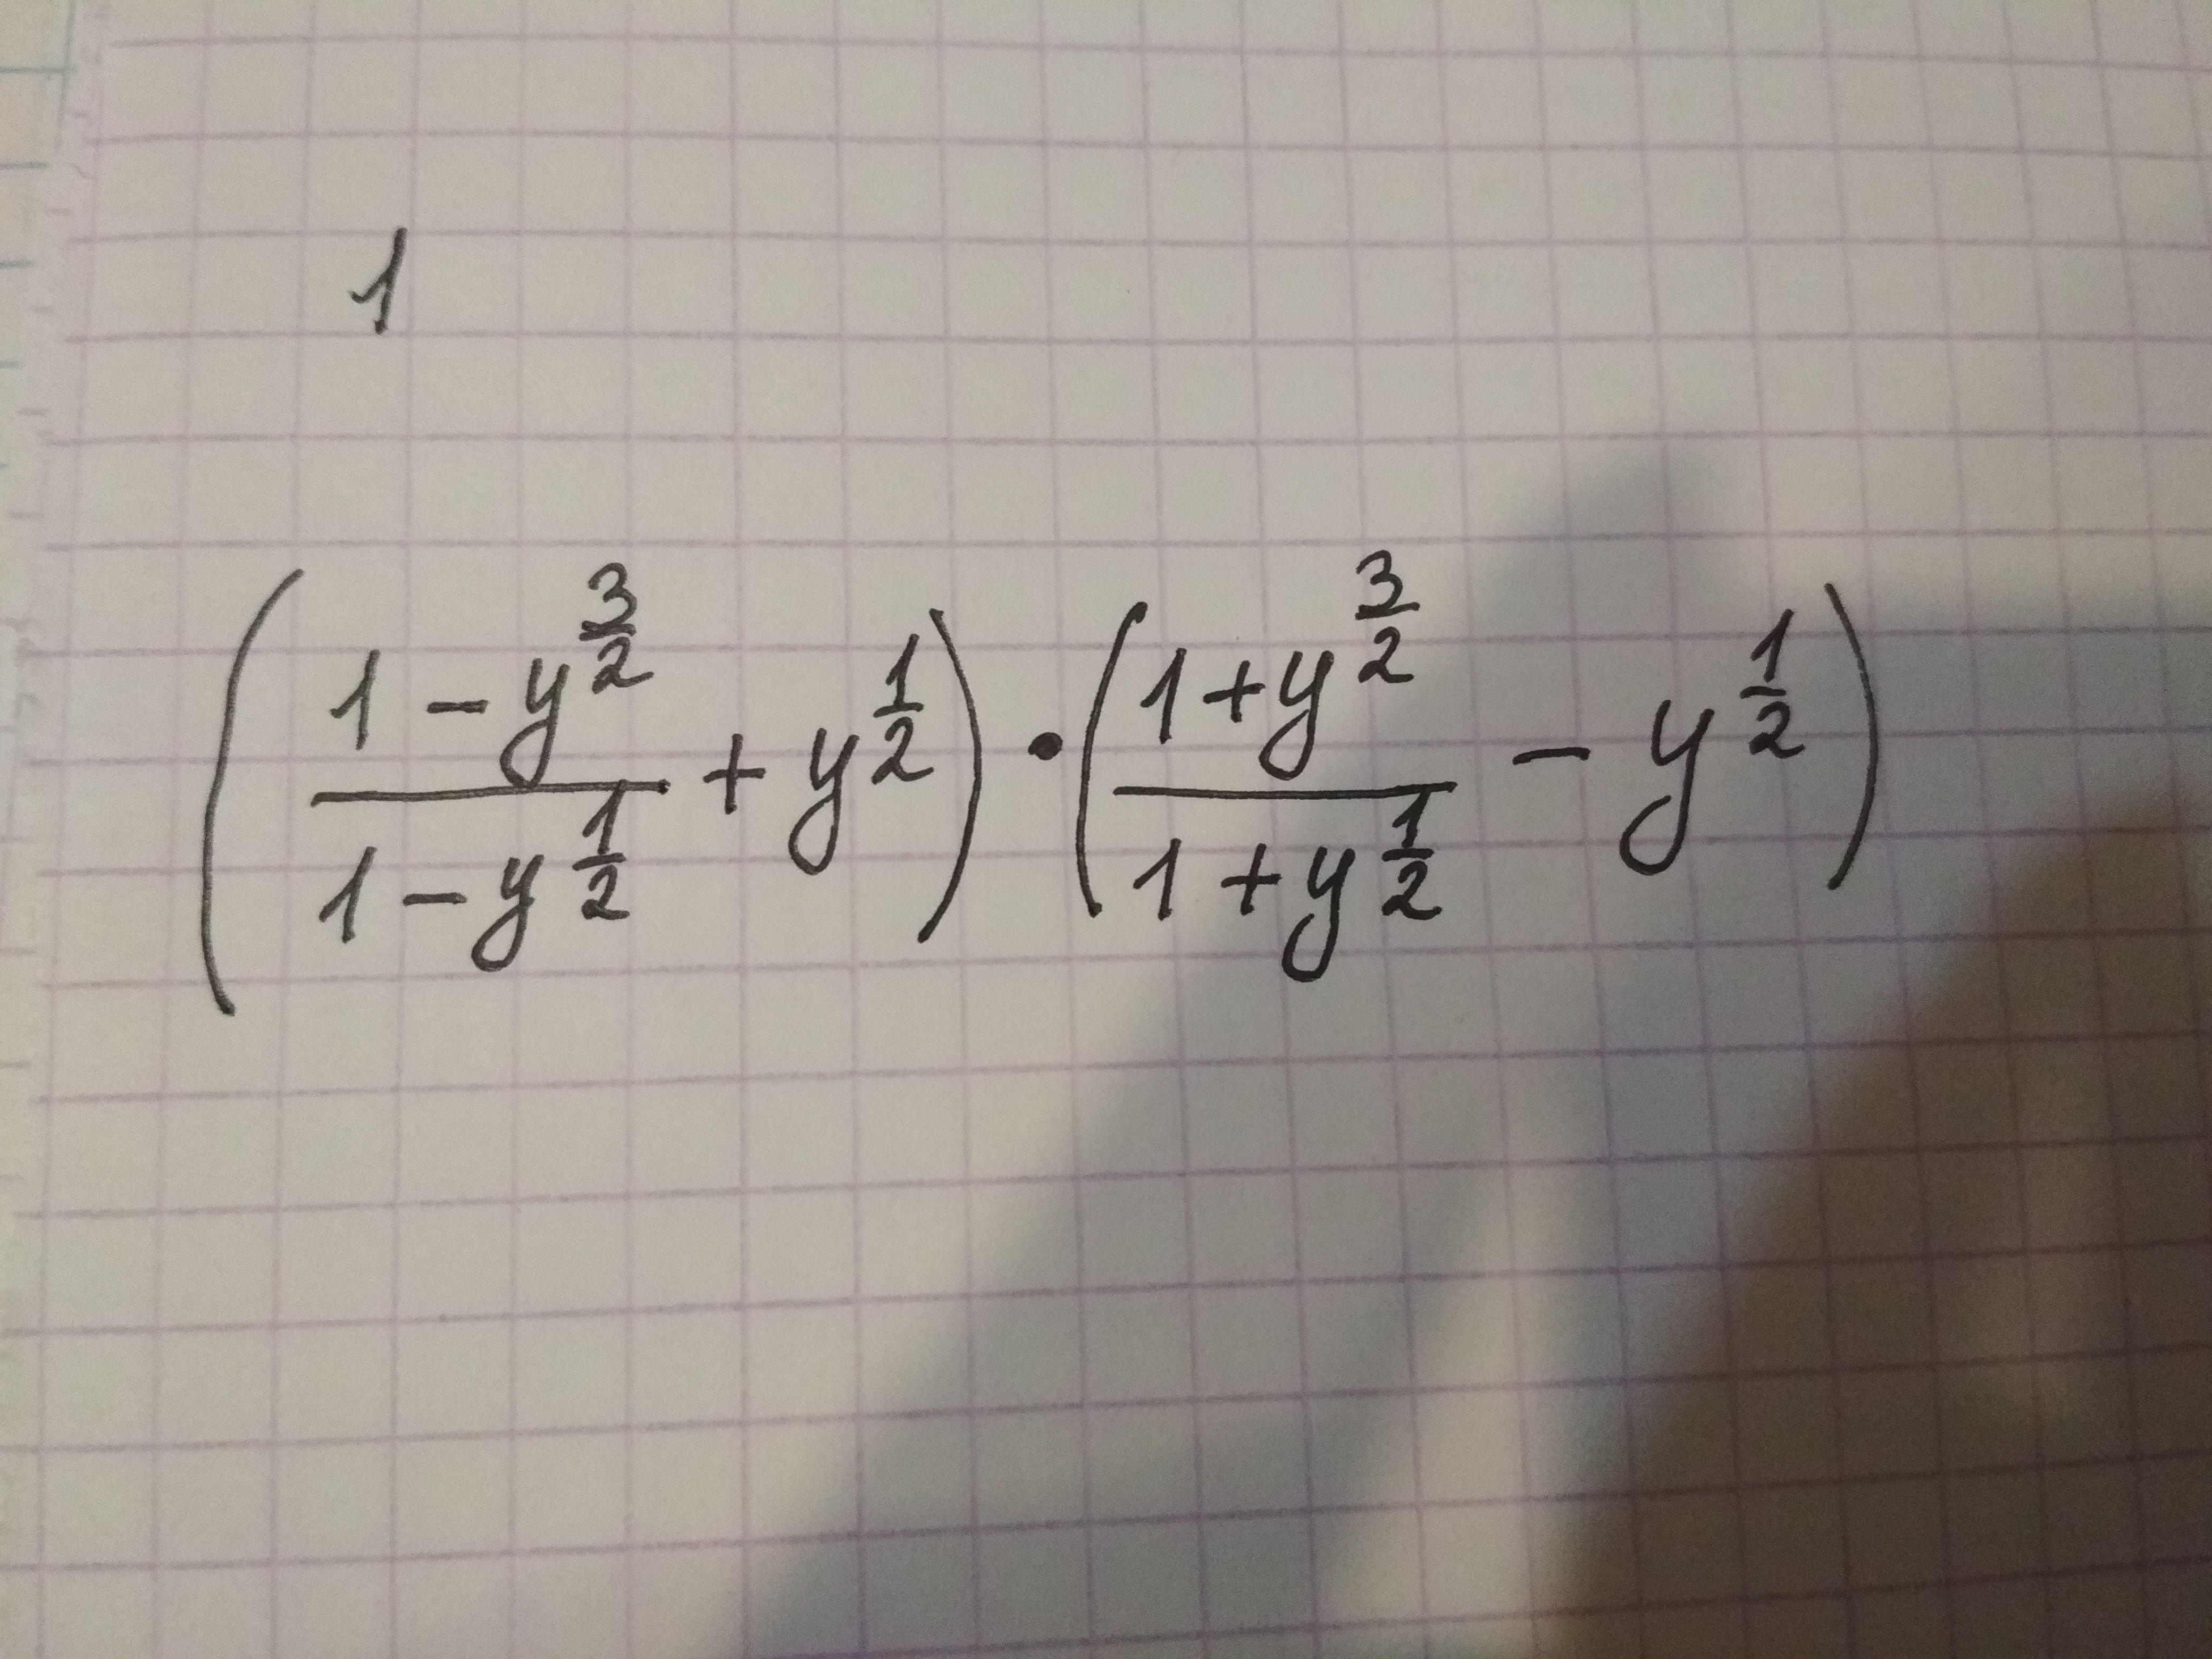 1
$\left( \frac{1 - y^{\frac{3}{2}}}{1 - y^{\frac{1}{2}}} + y^{\frac{1}{2}} \right) \cdot \left( \frac{1 + y^{\frac{3}{2}}}{1 + y^{\frac{1}{2}}} - y^{\frac{1}{2}} \right)$